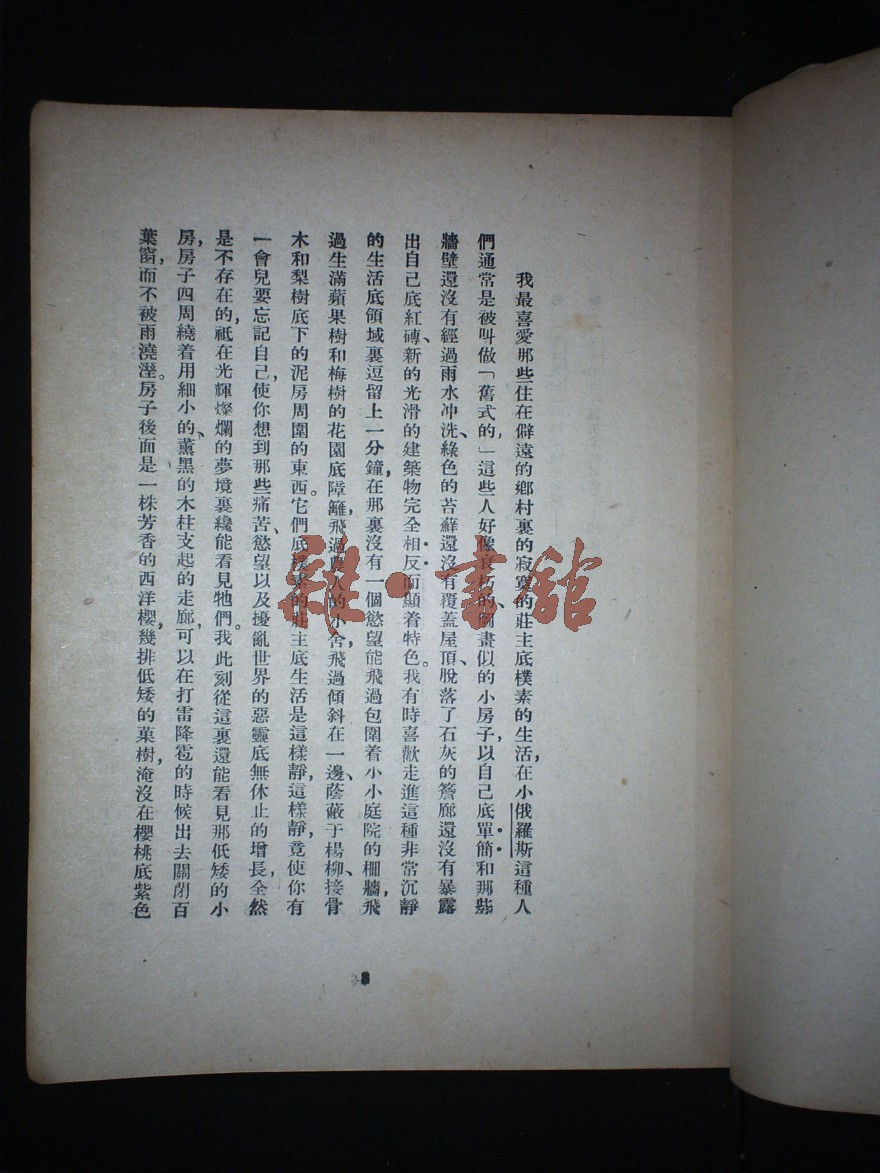 我最喜愛那些住在僻遠的鄉村裏的寂寞的莊主底樸素的生活，在小俄羅斯這種人
們通常是被叫做「舊式的，」這些人好像衰朽的、圖畫似的小房子，以自己底單簡和那些
牆壁還沒有經過雨水冲洗、綠色的苔蘚還沒有覆蓋屋頂、脫落了石灰的簷廊還沒有暴露
出自己底紅磚、新的光滑的建築物完全相反而顯着特色。我有時喜歡走進這種非常沉靜
的生活底領域裏逗留上一分鐘，在那裏沒有一個慾望能飛過包圍着小小庭院的柵牆，飛
過生滿蘋果樹和梅樹的花園底障籬，飛過農人的小舍，飛過傾斜在一邊、蔭蔽于楊柳、接骨
木和梨樹底下的泥房周圍的東西。它們底樸素的莊主底生活是這樣靜，這樣靜，竟使你有
一會兒要忘記自己，使你想到那些痛苦、慾望以及擾亂世界的惡靈底無休止的增長，全然
是不存在的，祇在光輝燦爛的夢境裏纔能看見牠們。我此刻從這裏還能看見那低矮的小
房，房子四周繞着用細小的、薰黑的木柱支起的走廊，可以在打雷降雹的時候出去關閉百
葉窗，而不被雨澆溼。房子後面是一株芳香的西洋櫻，幾排低矮的菓樹，淹沒在櫻桃底紫色
雜·書舘